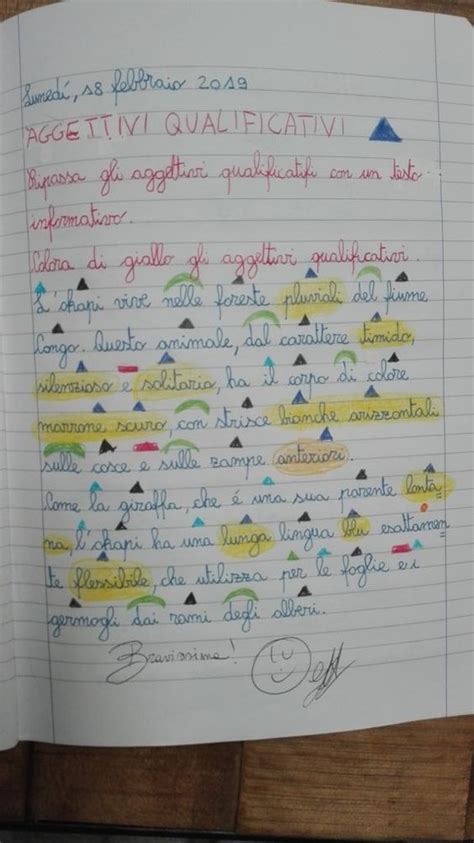 Lunedí, 18 febbraio 2019
AGGETTIVI QUALIFICATIVI
Ripassa gli aggettivi qualificatifi con un testo
informativo.
Colora di giallo gli aggettivi qualificativi.
L'okapi vive nelle foreste pluviali del fiume
Congo. Questo animale, dal carattere timido,
silenzioso e solitario, ha il corpo di colore
marrone scuro, con strisce bianche orizzontali
sulle cosce e sulle zampe anteriori.
Come la giraffa, che é una sua parente lonta
na, l'okapi ha una lunga lingua blu esattamen
te flessibile, che utilizza per le foglie e i
germogli dai rami degli alberi.
Bravissima!